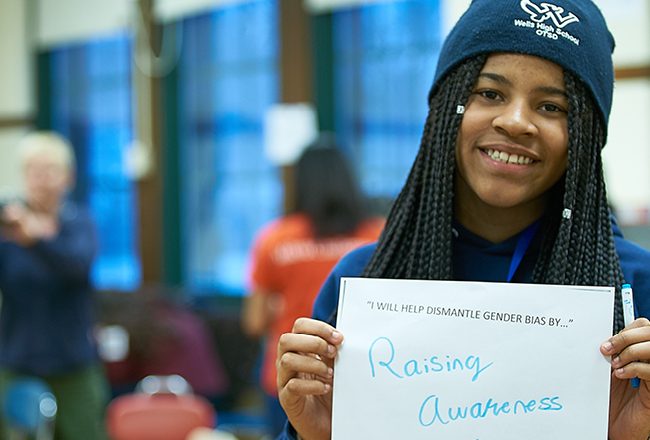 Wells High School
CTSD
"I WILL HELP DISMANTLE GENDER BIAS BY..."
Raising
Awareness